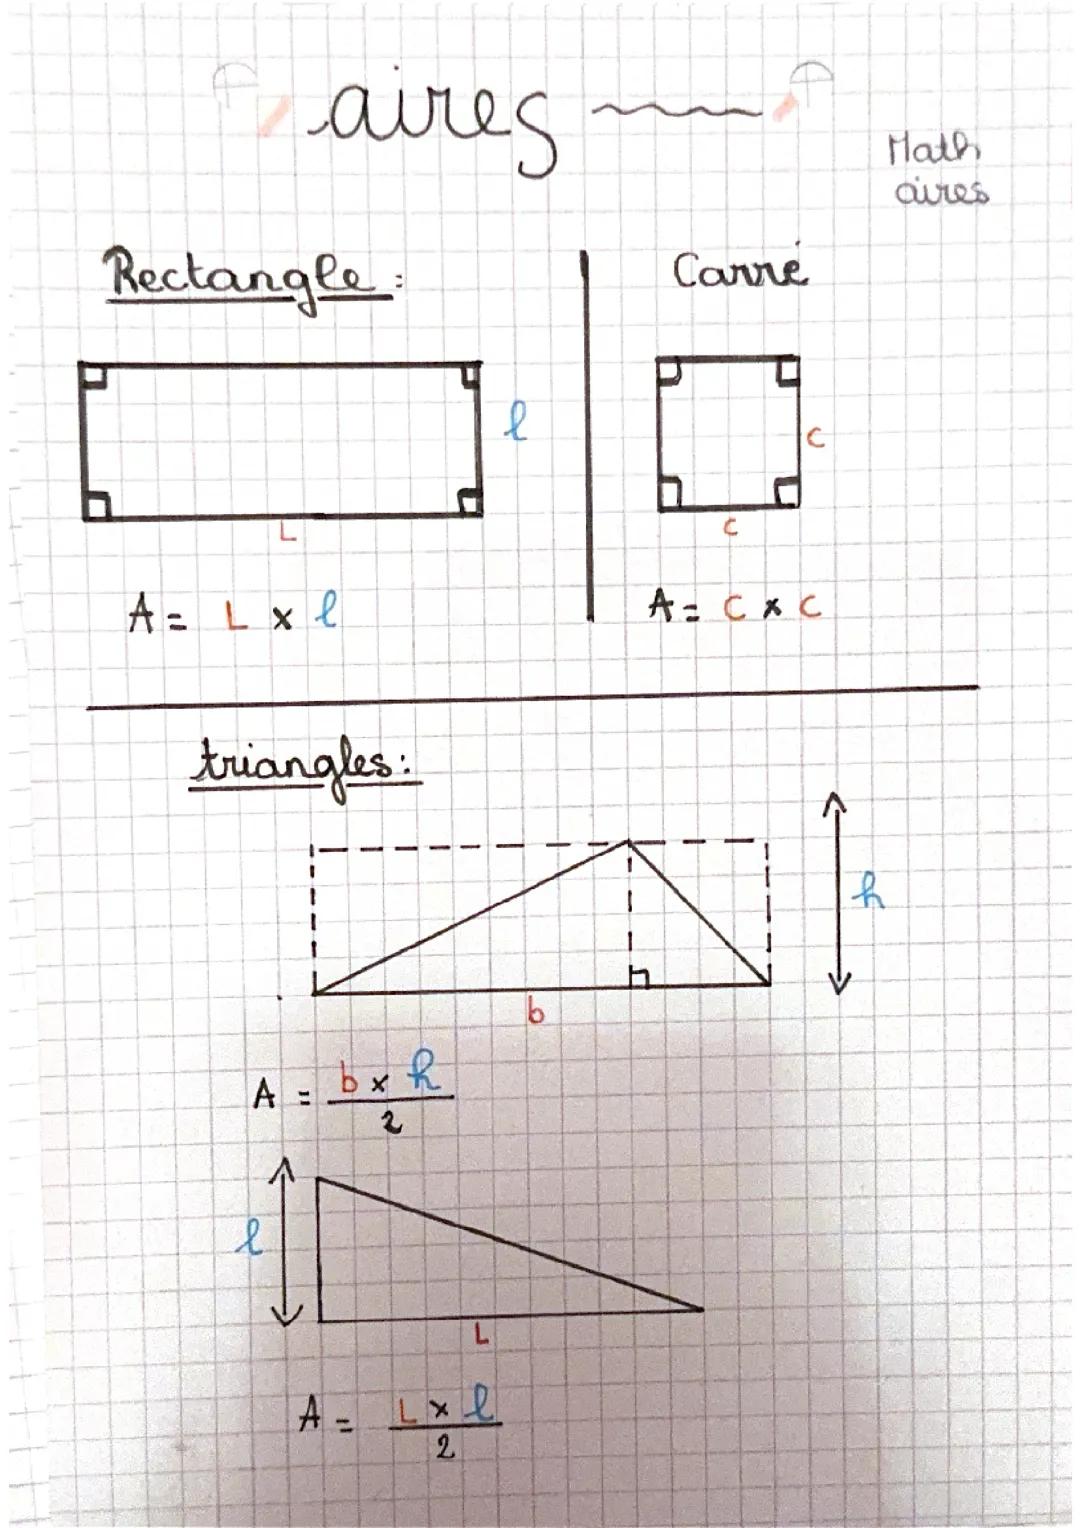 aires
Math
aires
Rectangle :
l
L
A = L x l
Carré
c
c
A = C x C
triangles :
h
b
A = b x h
2
l
L
A = L x l
2